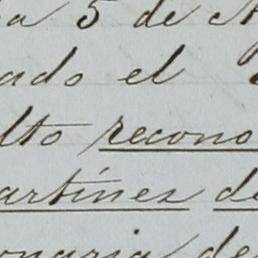 a 5 de A
ado el
lto recono
artínez de
onaria de